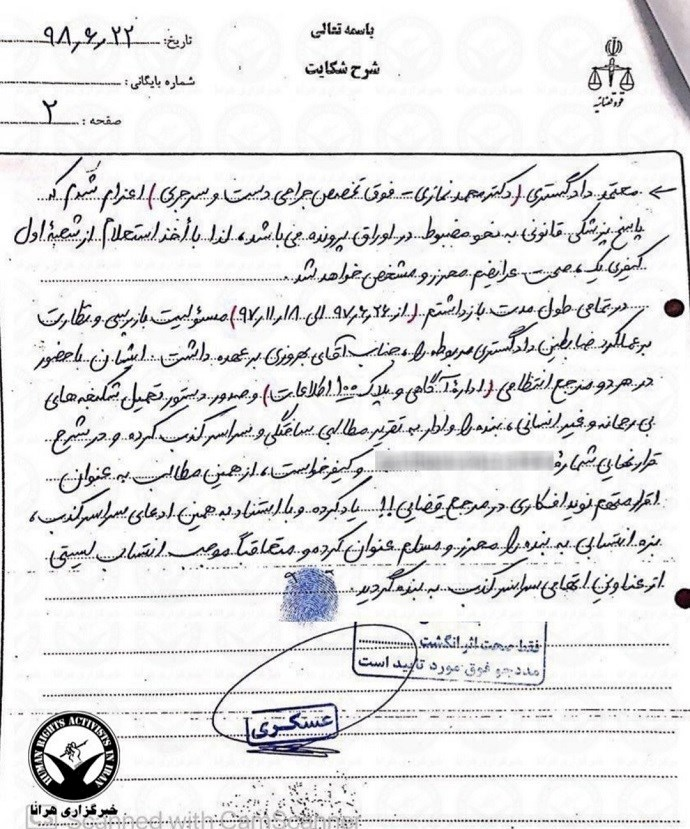 باسمه تعالی
شرح شکایت
قوه قضائیه
تاریخ: ۹۸٫۶٫۲۲
شماره بایگانی:
صفحه: ۲
← معتمد دادگستری (دکتر محمد نمازی - فوق تخصص جراحی دست و سرجری) اعزام شدم که
پاسخ پزشکی قانونی به نحو مضبوط در اوراق پرونده می باشد، لذا با أخذ استعلام از شعبهٔ اول
کیفری یک، صحت عرایضم محرز و مشخص خواهد شد.
در تمامی طول مدت بازداشتم (از ۹۷٫۶٫۲۶ الی ۹۷٫۱۱٫۱۸) مسئولیت بازرسی و نظارت
بر عملکرد ضابطین دادگستری مربوطه را، جناب آقای بهروزی بر عهده داشت. ایشان با حضور
در هر دو مرجع انتظامی (ادارهٔ آگاهی و پلاک ۱۰۰ اطلاعات) و صدور دستور تحمیل شکنجه های
بی رحمانه و غیر انسانی، بنده را وادار به تقریر مطالبی ساختگی و سراسر کذب کرده و در شرح
قرار نهایی شمارهٔ و کیفرخواست، از همین مطالب به عنوان
اقرار متهم نوید افکاری در مرجع قضایی!! یاد کرده و با استناد به همین ادعای سراسر کذب،
بزه انتسابی به بنده را محرز و مسلم عنوان کرده و متعاقباً موجب انتساب لیستی
از عناوین اتهامی سراسر کذب به بنده گردید.
فقط صحت اثر انگشت
مددجو فوق مورد تأیید است
عسگری
HUMAN RIGHTS ACTIVISTS IN IRAN
خبرگزاری هرانا
Scanned with CamScanner